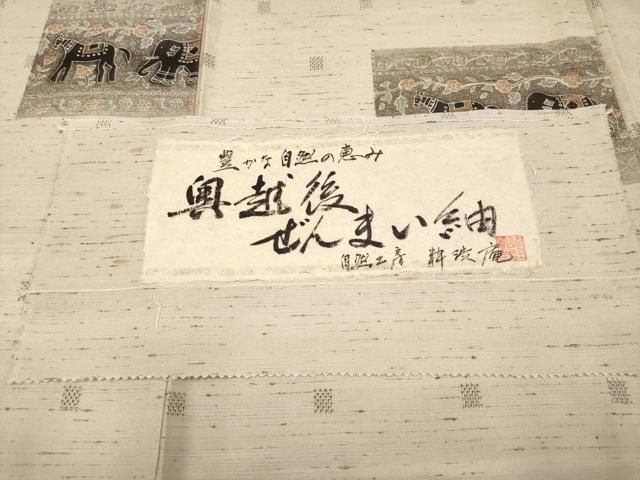 豊かな自然の恵み
奥越後
ぜんまい紬
自然工房
庵